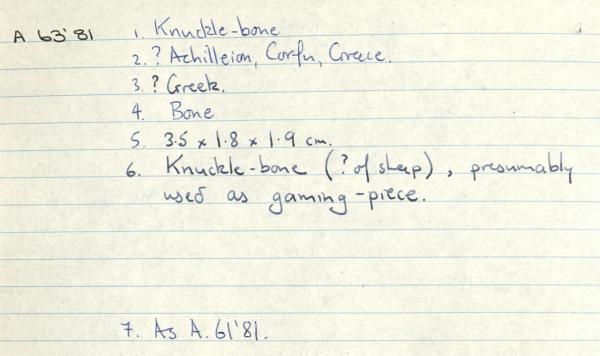 A 63'81 1. Knuckle-bone
2. ? Achilleion, Corfu, Greece.
3. ? Greek.
4. Bone
5. 3.5 x 1.8 x 1.9 cm.
6. Knuckle-bone (? of sheep), presumably
used as gaming-piece.
7. As A. 61'81.